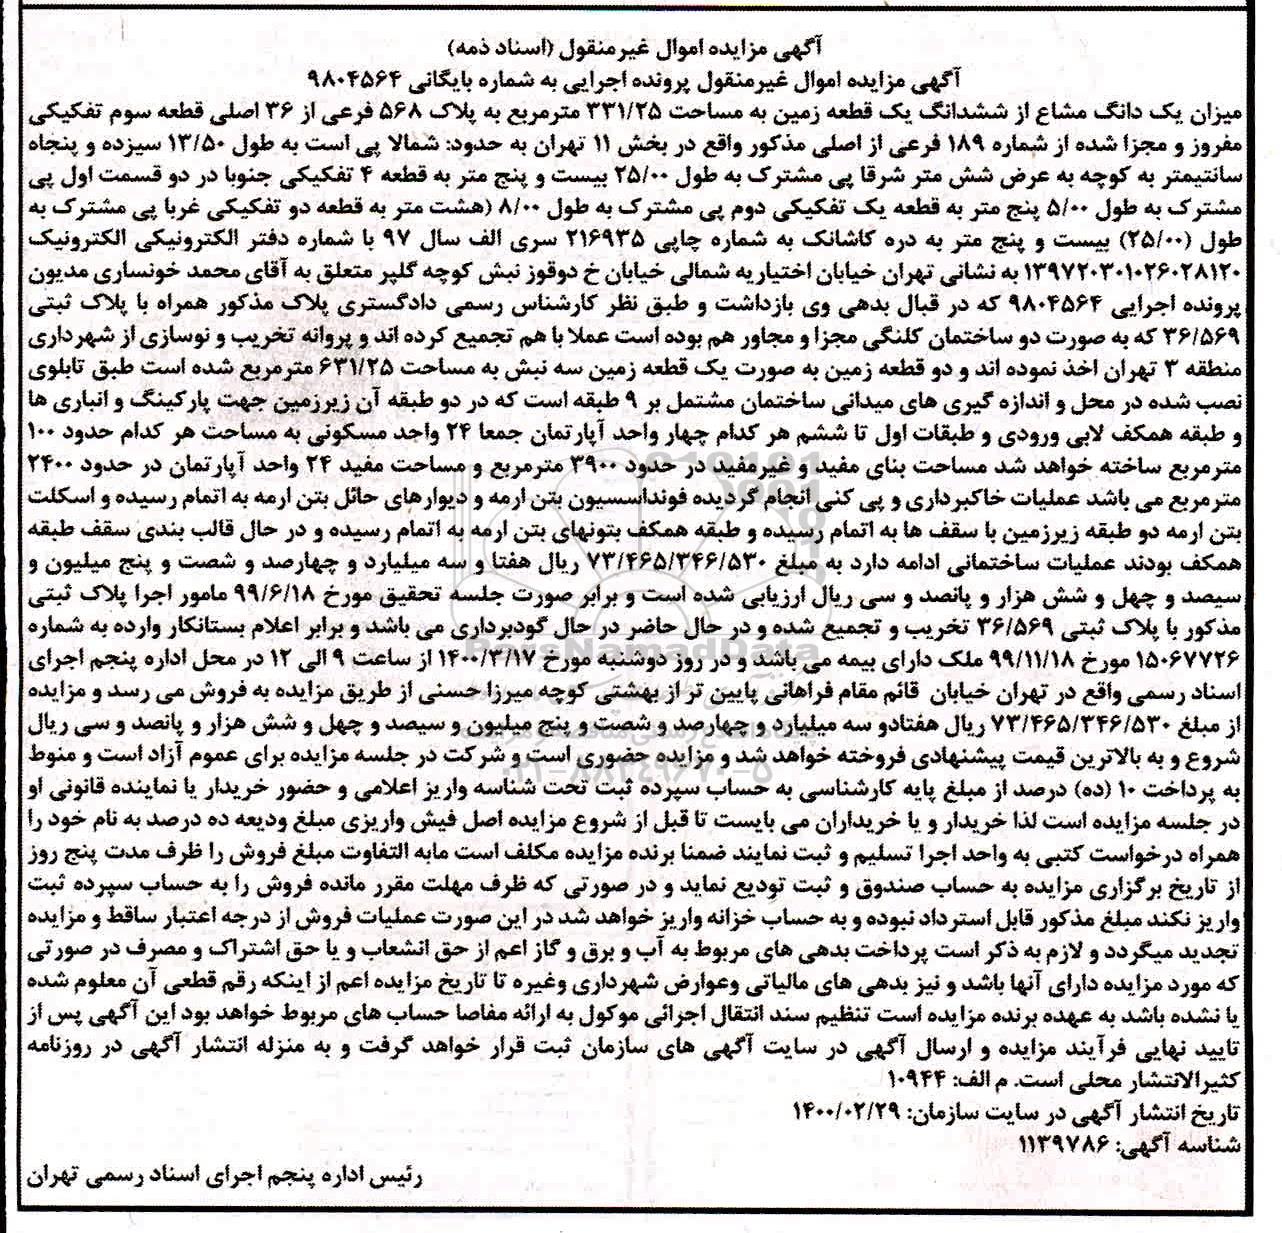 آگهی مزایده اموال غیرمنقول (اسناد ذمه)
آگهی مزایده اموال غیرمنقول پرونده اجرایی به شماره بایگانی ۹۸۰۴۵۶۴
میزان یک دانگ مشاع از ششدانگ یک قطعه زمین به مساحت ۳۳۱/۲۵ مترمربع به پلاک ۵۶۸ فرعی از ۳۶ اصلی قطعه سوم تفکیکی
مفروز و مجزا شده از شماره ۱۸۹ فرعی از اصلی مذکور واقع در بخش ۱۱ تهران به حدود: شمالا پی است به طول ۱۳/۵۰ سیزده و پنجاه
سانتیمتر به کوچه به عرض شش متر شرقا پی مشترک به طول ۲۵/۰۰ بیست و پنج متر به قطعه ۴ تفکیکی جنوبا در دو قسمت اول پی
مشترک به طول ۵/۰۰ پنج متر به قطعه یک تفکیکی دوم پی مشترک به طول ۸/۰۰ (هشت متر به قطعه دو تفکیکی غربا پی مشترک به
طول (۲۵/۰۰) بیست و پنج متر به دره کاشانک به شماره چاپی ۲۱۶۹۳۵ سری الف سال ۹۷ با شماره دفتر الکترونیکی الکترونیک
۱۳۹۷۲۰۳۰۱۰۲۶۰۲۸۱۲۰ به نشانی تهران خیابان اختیاریه شمالی خیابان خ دوقوز نبش کوچه گلپر متعلق به آقای محمد خونساری مدیون
پرونده اجرایی ۹۸۰۴۵۶۴ که در قبال بدهی وی بازداشت و طبق نظر کارشناس رسمی دادگستری پلاک مذکور همراه با پلاک ثبتی
۳۶/۵۶۹ که به صورت دو ساختمان کلنگی مجزا و مجاور هم بوده است عملا با هم تجمیع کرده اند و پروانه تخریب و نوسازی از شهرداری
منطقه ۳ تهران اخذ نموده اند و دو قطعه زمین به صورت یک قطعه زمین سه نبش به مساحت ۶۳۱/۲۵ مترمربع شده است طبق تابلوی
نصب شده در محل و اندازه گیری های میدانی ساختمان مشتمل بر ۹ طبقه است که در دو طبقه آن زیرزمین جهت پارکینگ و انباری ها
و طبقه همکف لابی ورودی و طبقات اول تا ششم هر کدام چهار واحد آپارتمان جمعا ۲۴ واحد مسکونی به مساحت هر کدام حدود ۱۰۰
مترمربع ساخته خواهد شد مساحت بنای مفید و غیرمفید در حدود ۳۹۰۰ مترمربع و مساحت مفید ۲۴ واحد آپارتمان در حدود ۲۴۰۰
مترمربع می باشد عملیات خاکبرداری و پی کنی انجام گردیده فونداسسیون بتن ارمه و دیوارهای حائل بتن ارمه به اتمام رسیده و اسکلت
بتن ارمه دو طبقه زیرزمین با سقف ها به اتمام رسیده و طبقه همکف بتونهای بتن ارمه به اتمام رسیده و در حال قالب بندی سقف طبقه
همکف بودند عملیات ساختمانی ادامه دارد به مبلغ ۷۳/۴۶۵/۳۴۶/۵۳۰ ریال هفتا و سه میلیارد و چهارصد و شصت و پنج میلیون و
سیصد و چهل و شش هزار و پانصد و سی ریال ارزیابی شده است و برابر صورت جلسه تحقیق مورخ ۹۹/۶/۱۸ مامور اجرا پلاک ثبتی
مذکور با پلاک ثبتی ۳۶/۵۶۹ تخریب و تجمیع شده و در حال حاضر در حال گودبرداری می باشد و برابر اعلام بستانکار وارده به شماره
۱۵۰۶۷۷۲۶ مورخ ۹۹/۱۱/۱۸ ملک دارای بیمه می باشد و در روز دوشنبه مورخ ۱۴۰۰/۳/۱۷ از ساعت ۹ الی ۱۲ در محل اداره پنجم اجرای
اسناد رسمی واقع در تهران خیابان قائم مقام فراهانی پایین تر از بهشتی کوچه میرزا حسنی از طریق مزایده به فروش می رسد و مزایده
از مبلغ ۷۳/۴۶۵/۳۴۶/۵۳۰ ریال هفتادو سه میلیارد و چهارصد و شصت و پنج میلیون و سیصد و چهل و شش هزار و پانصد و سی ریال
شروع و به بالاترین قیمت پیشنهادی فروخته خواهد شد و مزایده حضوری است و شرکت در جلسه مزایده برای عموم آزاد است و منوط
به پرداخت ۱۰ (ده) درصد از مبلغ پایه کارشناسی به حساب سپرده ثبت تحت شناسه واریز اعلامی و حضور خریدار یا نماینده قانونی او
در جلسه مزایده است لذا خریدار و یا خریداران می بایست تا قبل از شروع مزایده اصل فیش واریزی مبلغ ودیعه ده درصد به نام خود را
همراه درخواست کتبی به واحد اجرا تسلیم و ثبت نمایند ضمنا برنده مزایده مکلف است مابه التفاوت مبلغ فروش را ظرف مدت پنج روز
از تاریخ برگزاری مزایده به حساب صندوق و ثبت تودیع نماید و در صورتی که ظرف مهلت مقرر مانده فروش را به حساب سپرده ثبت
واریز نکند مبلغ مذکور قابل استرداد نبوده و به حساب خزانه واریز خواهد شد در این صورت عملیات فروش از درجه اعتبار ساقط و مزایده
تجدید میگردد و لازم به ذکر است پرداخت بدهی های مربوط به آب و برق و گاز اعم از حق انشعاب و یا حق اشتراک و مصرف در صورتی
که مورد مزایده دارای آنها باشد و نیز بدهی های مالیاتی وعوارض شهرداری وغیره تا تاریخ مزایده اعم از اینکه رقم قطعی آن معلوم شده
یا نشده باشد به عهده برنده مزایده است تنظیم سند انتقال اجرائی موکول به ارائه مفاصا حساب های مربوط خواهد بود این آگهی پس از
تایید نهایی فرآیند مزایده و ارسال آگهی در سایت آگهی های سازمان ثبت قرار خواهد گرفت و به منزله انتشار آگهی در روزنامه
کثیرالانتشار محلی است. م الف: ۱۰۹۴۴
تاریخ انتشار آگهی در سایت سازمان: ۱۴۰۰/۰۲/۲۹
شناسه آگهی: ۱۱۳۹۷۸۶
رئیس اداره پنجم اجرای اسناد رسمی تهران
ParsNamadData
۰۲۱-۸۸۳۴۹۶۷۰-۵